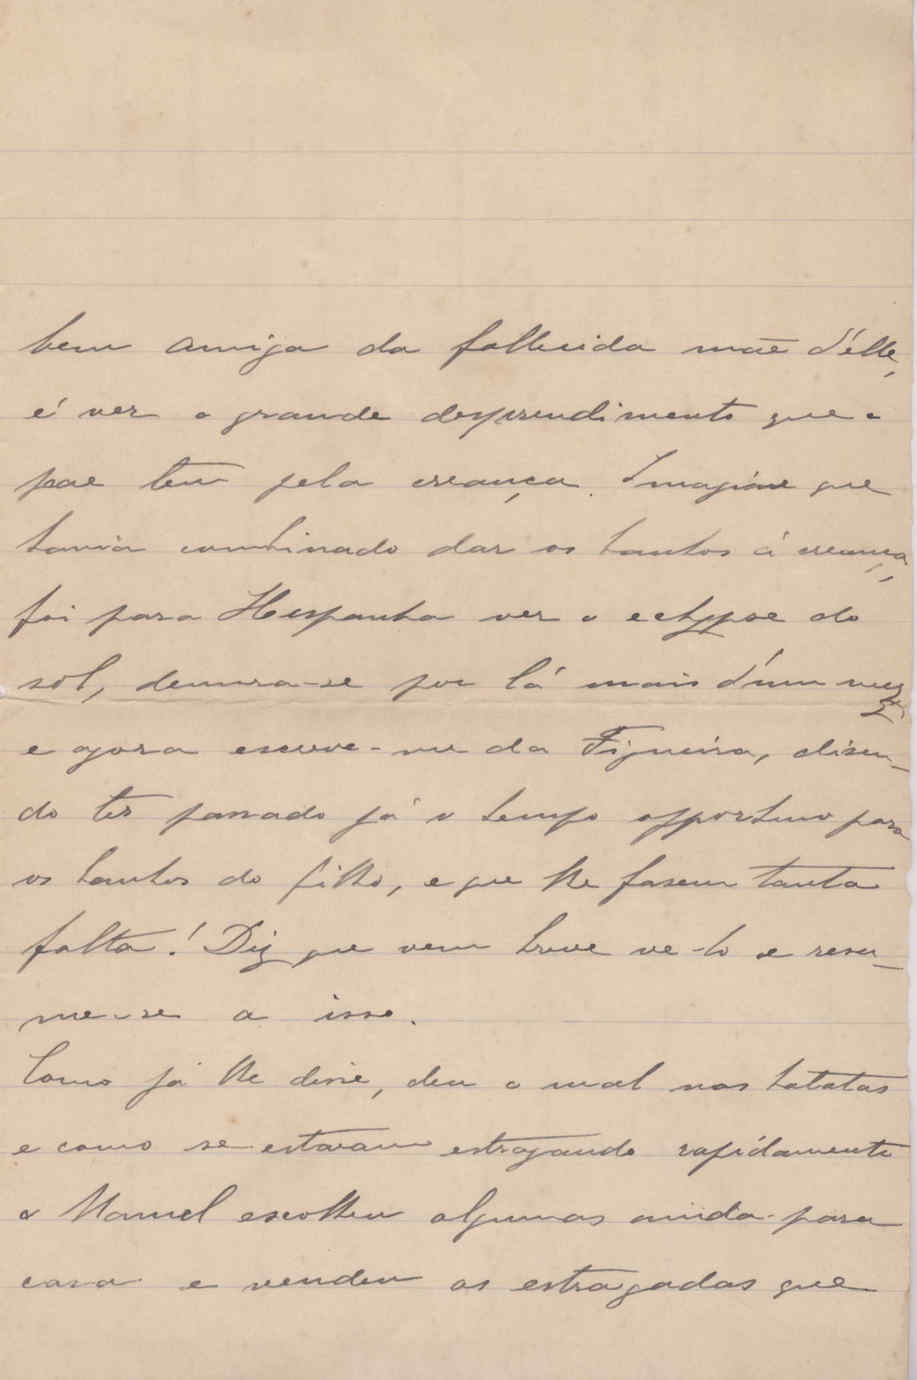 bem amiga da fallecida mãe d'elle,
é ver o grande desprendimento que o
pae tem pela creança. Imagine que
havia combinado dar os banhos á creança,
foi para Hespanha ver o eclypse do
sol, demora-se por lá mais d'um mez,
e agora escreve-me da Figueira, disen-
do ter passado já o tempo opportuno para
os banhos do filho, e que lhe fasem tanta
falta! Diz que vem breve ve-lo e resu-
me-se a isso.
Como já lhe disse, deu o mal nas batatas
e como se estavam estragando rapidamente
o Manuel escolheu algumas ainda para
casa e vendeu as estragadas que